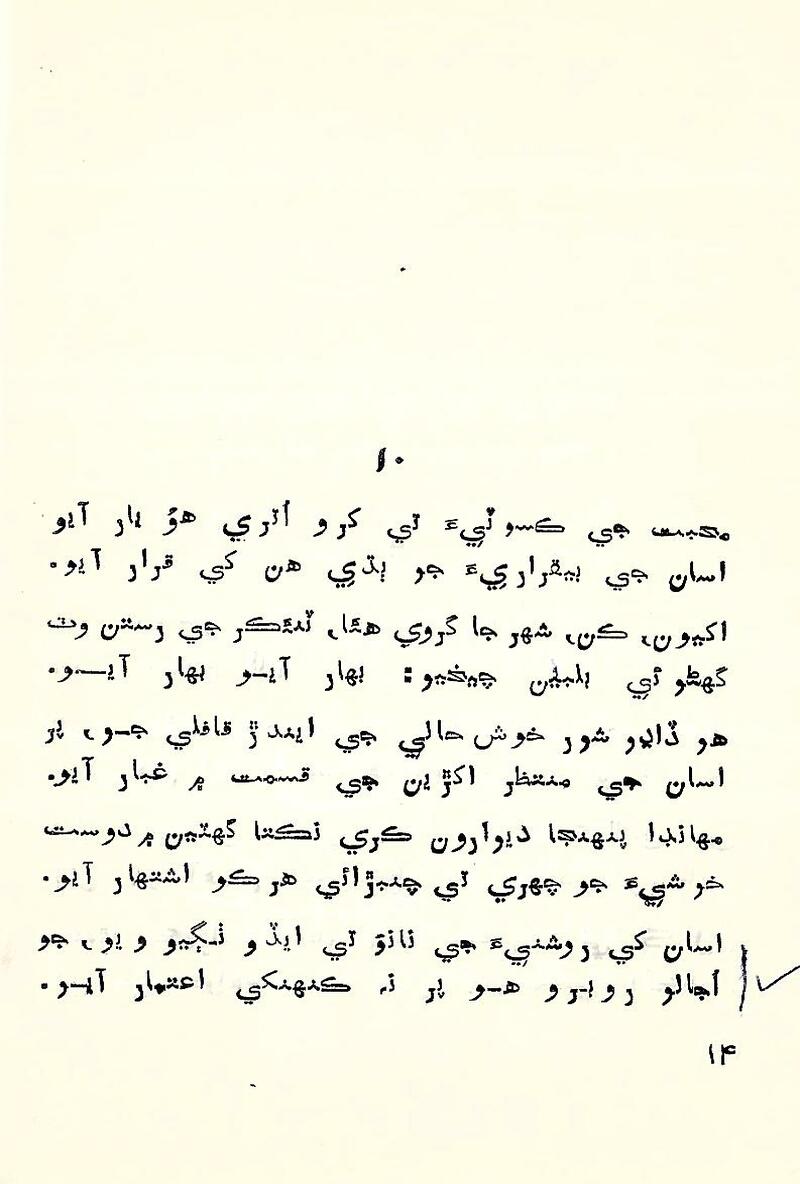 ۱۰
محبت جي ڪسوٽيءَ تي کرو اُتري هوُ يار آيو
اسان جي بيقراريءَ جو ٻڌي هن کي قرار آيو.
اکيون، ڪن، شهر جا گروي هئا، ٽئڪر جي رستن وٽ
گهڻو ئي بلبلين چيخيو: بهار آيو بهار آيو.
هو ڏاڍو شور خوش حالي جي ايندڙ قافلي جو، پر
اسان جي منتظر اکڙين جي قسمت ۾ غبار آيو.
مهاندا پنهنجا ديوارون ڪري نڪتا گهٽين ۾ دوست
خوشيءَ جو چهري تي چنبڙائي هرڪو اشتهار آيو.
اسان کي روشنيءَ جي نانءَ تي ايڏو ٺڳيو ويو، جو
اُجالو روبرو هو پر نہ ڪنهنکي اعتبار آيو.
۱۴